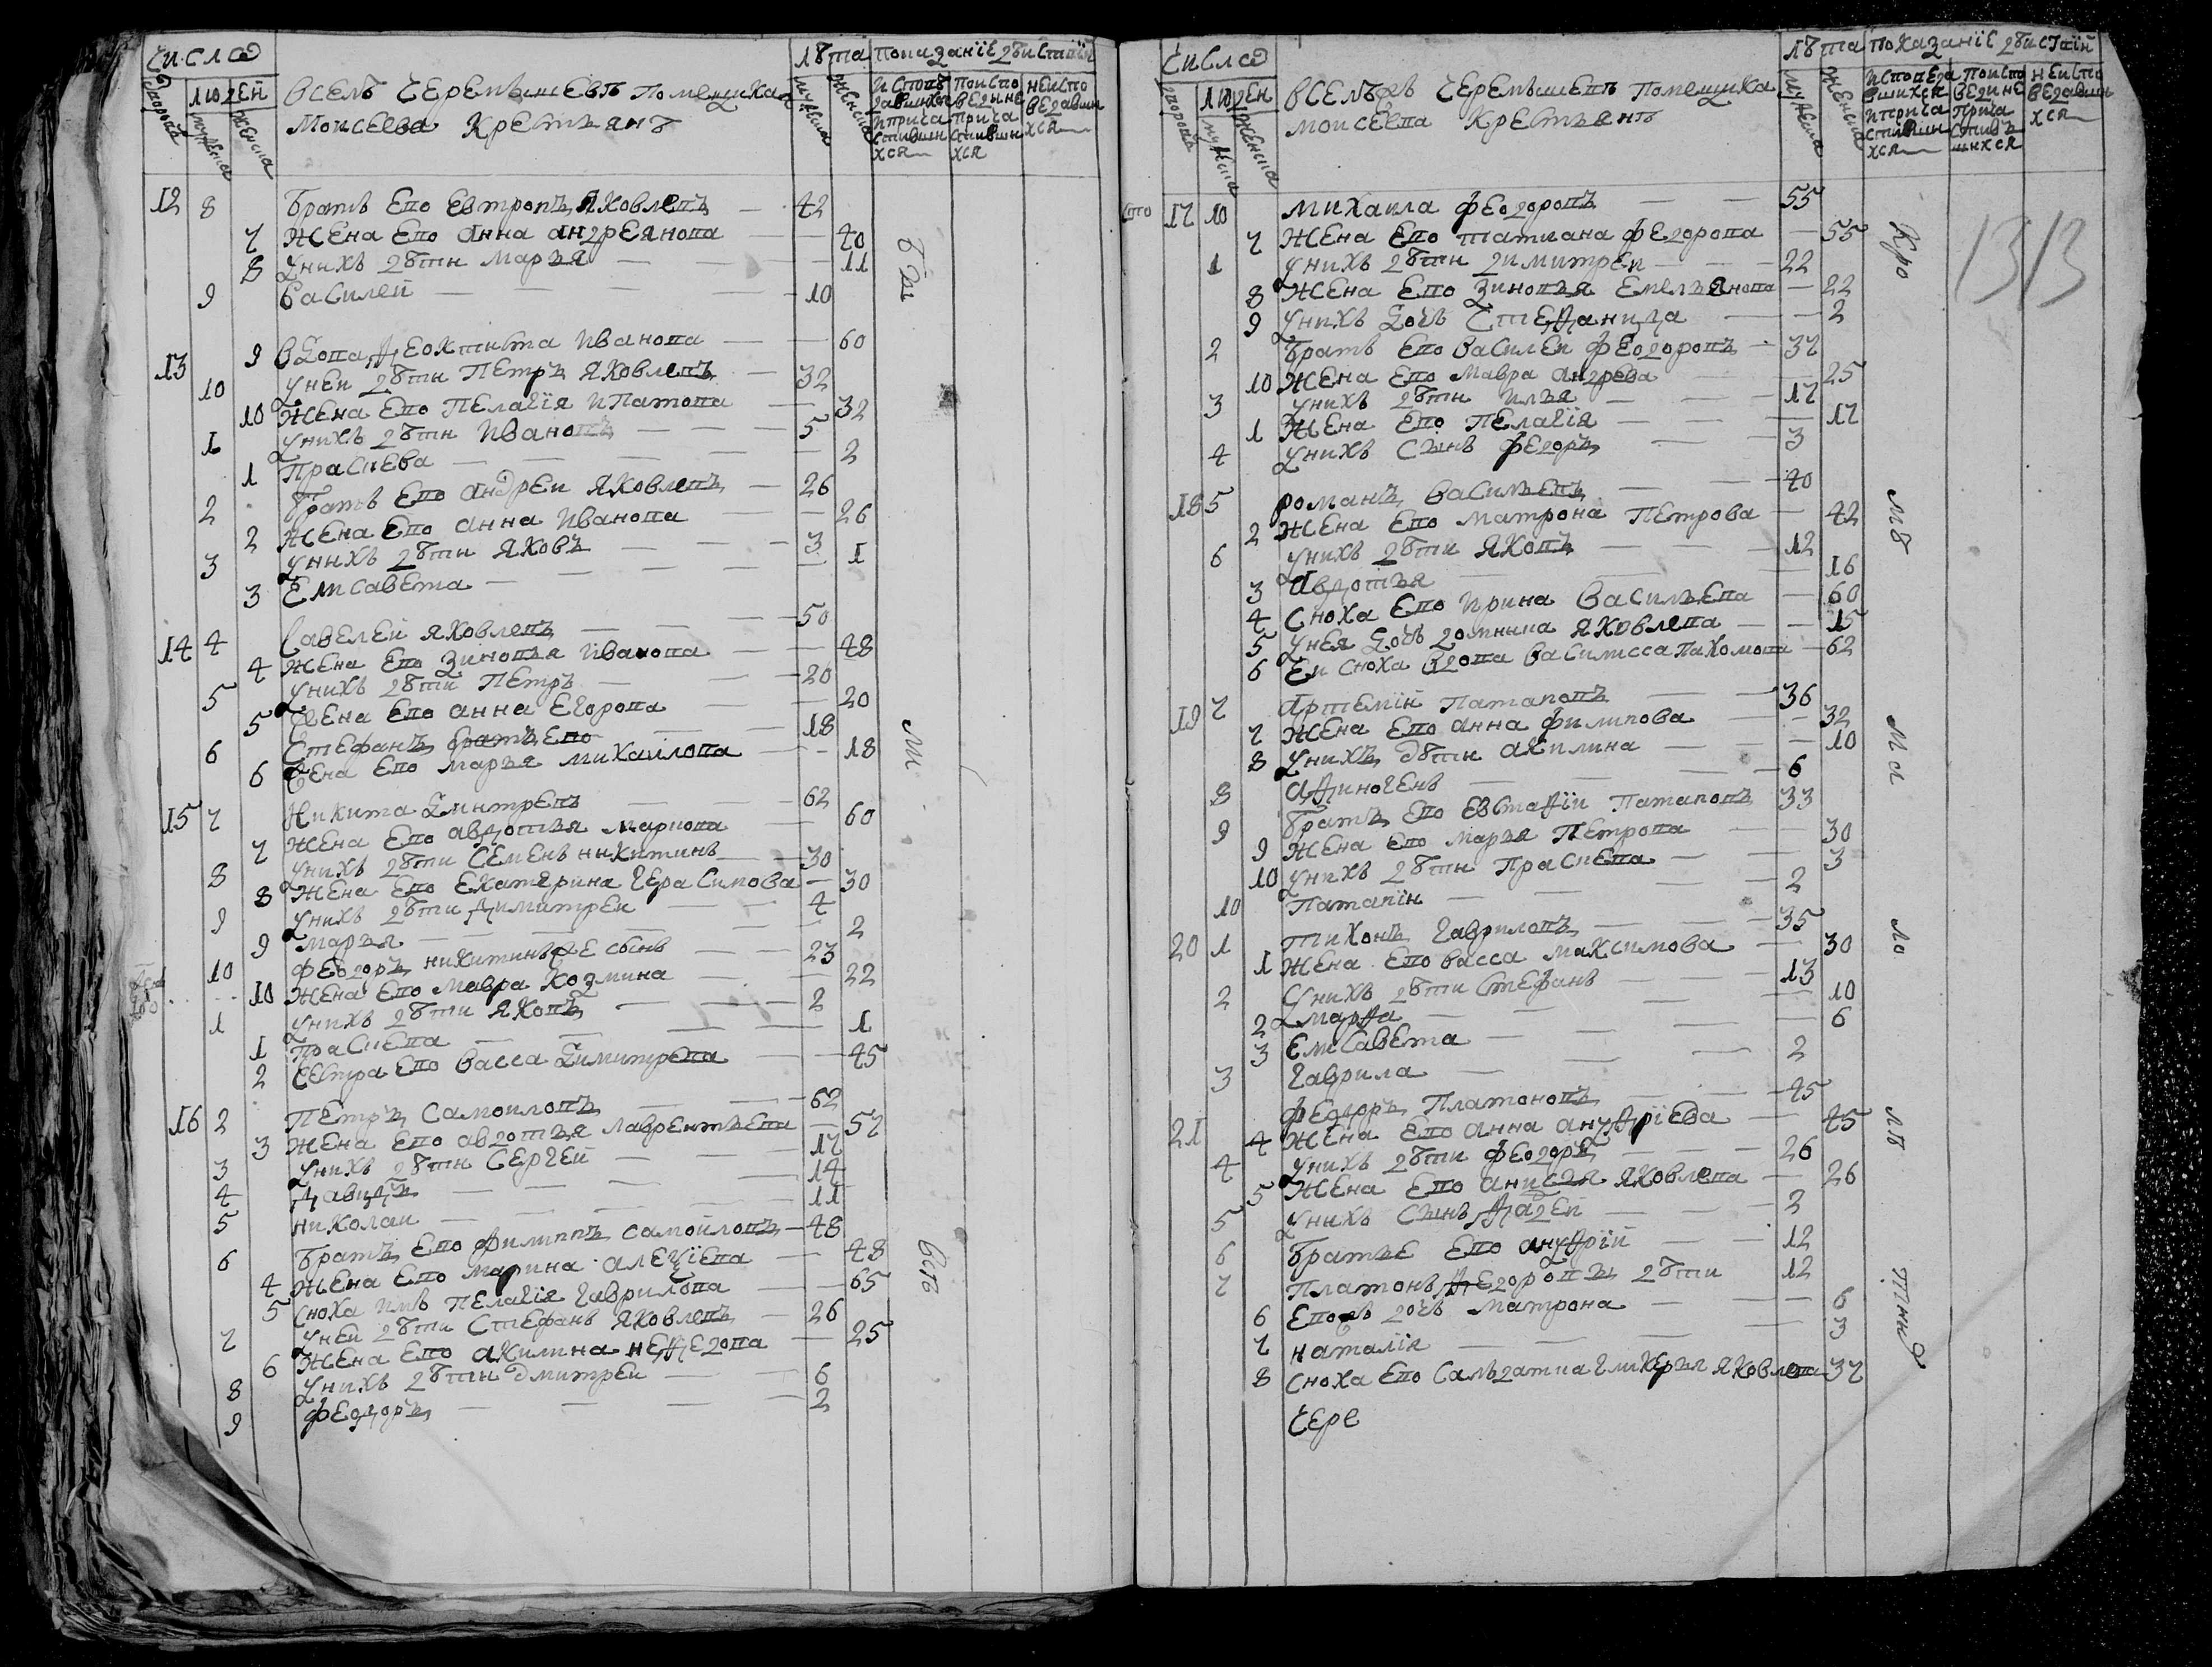 Число
Дворовъ
Людей
мужеска
женска
Вселѣ Черемѣшевѣ помещика
Моисеева Крестьянъ
Лѣта
мужеска
женска
Показанїе дѣиствїи
исповѣдавшихся и причастившихся
поисповѣдыне причастившихся
неисповѣдавшихся
12 8 братъ Ево Евтропъ Яковлевъ — 42
7 жена Ево анна андреянова — 40
8 у нихъ дѣти Марья — 11
9 Василей — 10
13 9 Вдова феоктиста Иванова — 60
10 у неи дѣти Петръ Яковлевъ — 32
10 Жена Ево Пелагїя Ипатова — 32
1 у нихъ дѣти Иванъ — 5
1 Праскева — 2
2 братъ Ево андреи Яковлевъ — 26
2 Жена Ево анна Иванова — 26
3 у нихъ дѣти Яковъ — 3
3 Елисавета — 1
14 4 Савелеи Яковлевъ — 50
4 Жена Ево Зиновья Иванова — 48
5 у нихъ дѣти Петръ — 20
5 Жена Ево анна Егорова — 20
6 Стефанъ братъ Ево — 18
6 Жена Ево Марья Михаилова — 18
15 7 Никита Дмитревъ — 62
7 Жена Ево авдотья Маркова — 60
8 у нихъ дѣти Семенъ никитинъ — 30
8 Жена Ево Екатерина Герасимова — 30
9 у нихъ дѣти димитреи — 4
9 Марья — 2
10 феодоръ никитинъ же сынъ — 23
10 Жена Ево мавра Козмина — 22
1 у нихъ дѣти Яковъ — 2
1 Праскева — 1
2 Сестра Ево Васса Димитрева — 45
16 2 Петръ Самоиловъ — 62
3 Жена Ево авдотья лаврентьева — 57
3 у нихъ дѣти Сергей — 17
4 давидъ — 14
5 николаи — 11
6 братъ Ево филиппъ самойловъ — 48
4 Жена Ево марина алеѯїева — 48
5 Сноха имъ Пелагїя Гаврилова — 65
7 у неи дѣти Стефанъ Яковлевъ — 26
6 Жена Ево акилина нефедова — 25
8 у нихъ дѣти дмитреи — 6
9 феодоръ — 2
Число
Дворовъ
Людей
мужеска
женска
Вселѣ Черемѣшевѣ помещика
Моисеева Крестьянъ
Лѣта
мужеска
женска
Показанїе дѣистїи
исповедавшихся и причастившихся
поисповедине причастившихся
неисповедавшихся
17 10 Михаила феодоровъ — 55
7 Жена Ево татиана федорова — 55
1 у нихъ дѣти димитреи — 22
8 Жена Ево Зиновья Емельянова — 22
9 у нихъ дочь Стефанида — 2
2 братъ Ево Василеи феодоровъ — 37
10 Жена Ево мавра андрева — 25
3 у нихъ дѣти илья — 17
1 Жена Ево Пелагїя — 17
4 у нихъ сынъ федоръ — 3
18 5 романъ Васильевъ — 40
2 Жена Ево матрона Петрова — 42
6 у нихъ дѣти Яковъ — 12
3 авдотья — 16
4 Сноха Ево ирина Васильева — 60
5 у нея дочь домника Яковлева — 15
6 Еи сноха вдова Василисса Пахомова — 62
19 7 Артемїи Патаповъ — 36
7 Жена Ево анна филипова — 32
8 у нихъ дѣти акилина — 10
8 афиногенъ — 6
9 братъ Ево Евстафїи Патаповъ — 33
9 Жена Ево Марья Петрова — 30
10 у нихъ дѣти Праскева — 3
10 Патапїи — 2
20 1 тихонъ Гавриловъ — 35
1 Жена Ево васса максимова — 30
2 у нихъ дѣти Стефанъ — 13
2 марфа — 10
3 Елисавета — 6
3 Гаврила — 2
21 федоръ Платоновъ — 45
4 Жена Ево анна ануфрїева — 45
4 у нихъ дѣти феодоръ — 26
5 Жена Ево анисья Яковлева — 26
5 у нихъ сынъ фадей — 2
6 братье Ево ануфрїй — 12
7 Платонъ федоровъ дѣти — 12
6 Евожъ дочь Матрона — 6
7 наталїя — 3
8 Сноха Ево салдатка гликерья Яковлева 37
Чере
1313